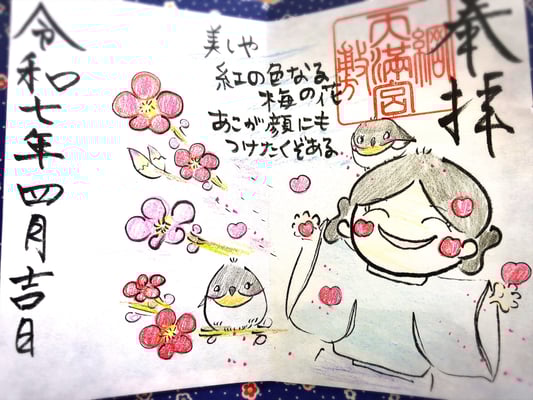 奉拝
綱敷
天満宮
美しや
紅の色なる
梅の花
あこが顔にも
つけたくぞある
令和七年四月吉日